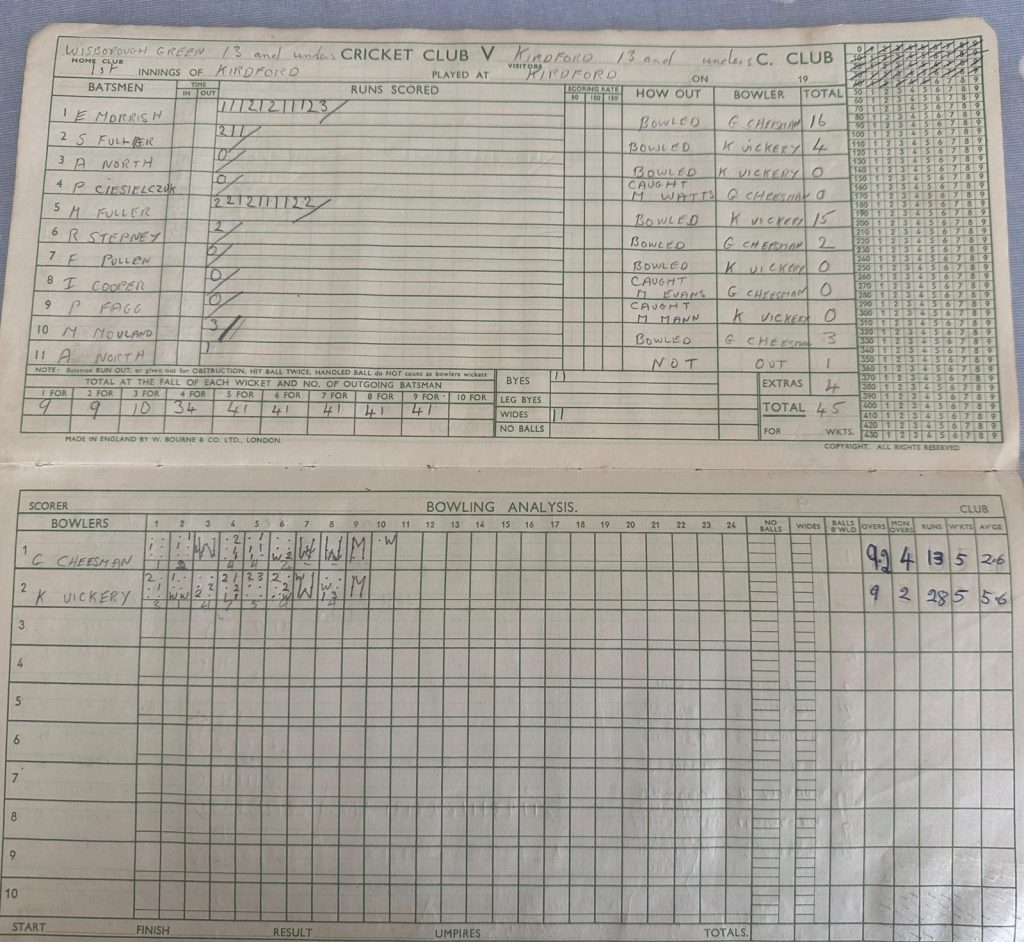 WISBOROUGH GREEN 13 and unders CRICKET CLUB V KIRDFORD 13 and unders C. CLUB
HOME CLUB VISITORS
1st INNINGS OF KIRDFORD PLAYED AT KIRDFORD ON 19
BATSMEN TIME IN OUT RUNS SCORED SCORING RATE 50 100 150 HOW OUT BOWLER TOTAL
1 E MORRISH 11121211123 BOWLED G CHEESMAN 16
2 S FULLER 211 BOWLED K VICKERY 4
3 A NORTH 0 BOWLED K VICKERY 0
4 P CIESIELCZUK 0 CAUGHT M WATTS G CHEESMAN 0
5 M FULLER 2212111122 BOWLED K VICKERY 15
6 R STEPNEY 2 BOWLED G CHEESMAN 2
7 F PULLEN 0 BOWLED K VICKERY 0
8 I COOPER 0 CAUGHT M EVANS G CHEESMAN 0
9 P FAGG 0 CAUGHT M MANN K VICKERY 0
10 M MOULAND 3 BOWLED G CHEESMAN 3
11 A NORTH 1 NOT OUT 1
NOTE: Batsmen RUN OUT, or given out for OBSTRUCTION, HIT BALL TWICE, HANDLED BALL do NOT count as bowlers wickets
TOTAL AT THE FALL OF EACH WICKET AND NO. OF OUTGOING BATSMAN
1 FOR 2 FOR 3 FOR 4 FOR 5 FOR 6 FOR 7 FOR 8 FOR 9 FOR 10 FOR
9 9 10 34 41 41 41 41 41
BYES 11 EXTRAS 4
LEG BYES
WIDES 11 TOTAL 45
NO BALLS FOR WKTS.
MADE IN ENGLAND BY W. BOURNE & CO. LTD., LONDON. COPYRIGHT. ALL RIGHTS RESERVED
SCORER BOWLING ANALYSIS. CLUB
BOWLERS 1 2 3 4 5 6 7 8 9 10 11 12 13 14 15 16 17 18 19 20 21 22 23 24 NO BALLS WIDES BALLS B'WLD OVERS MDN OVERS RUNS W'KTS AV'GE
1 G CHEESMAN 9.2 4 13 5 2.6
2 K VICKERY 9 2 28 5 5.6
3
4
5
6
7
8
9
10
START FINISH RESULT UMPIRES TOTALS.